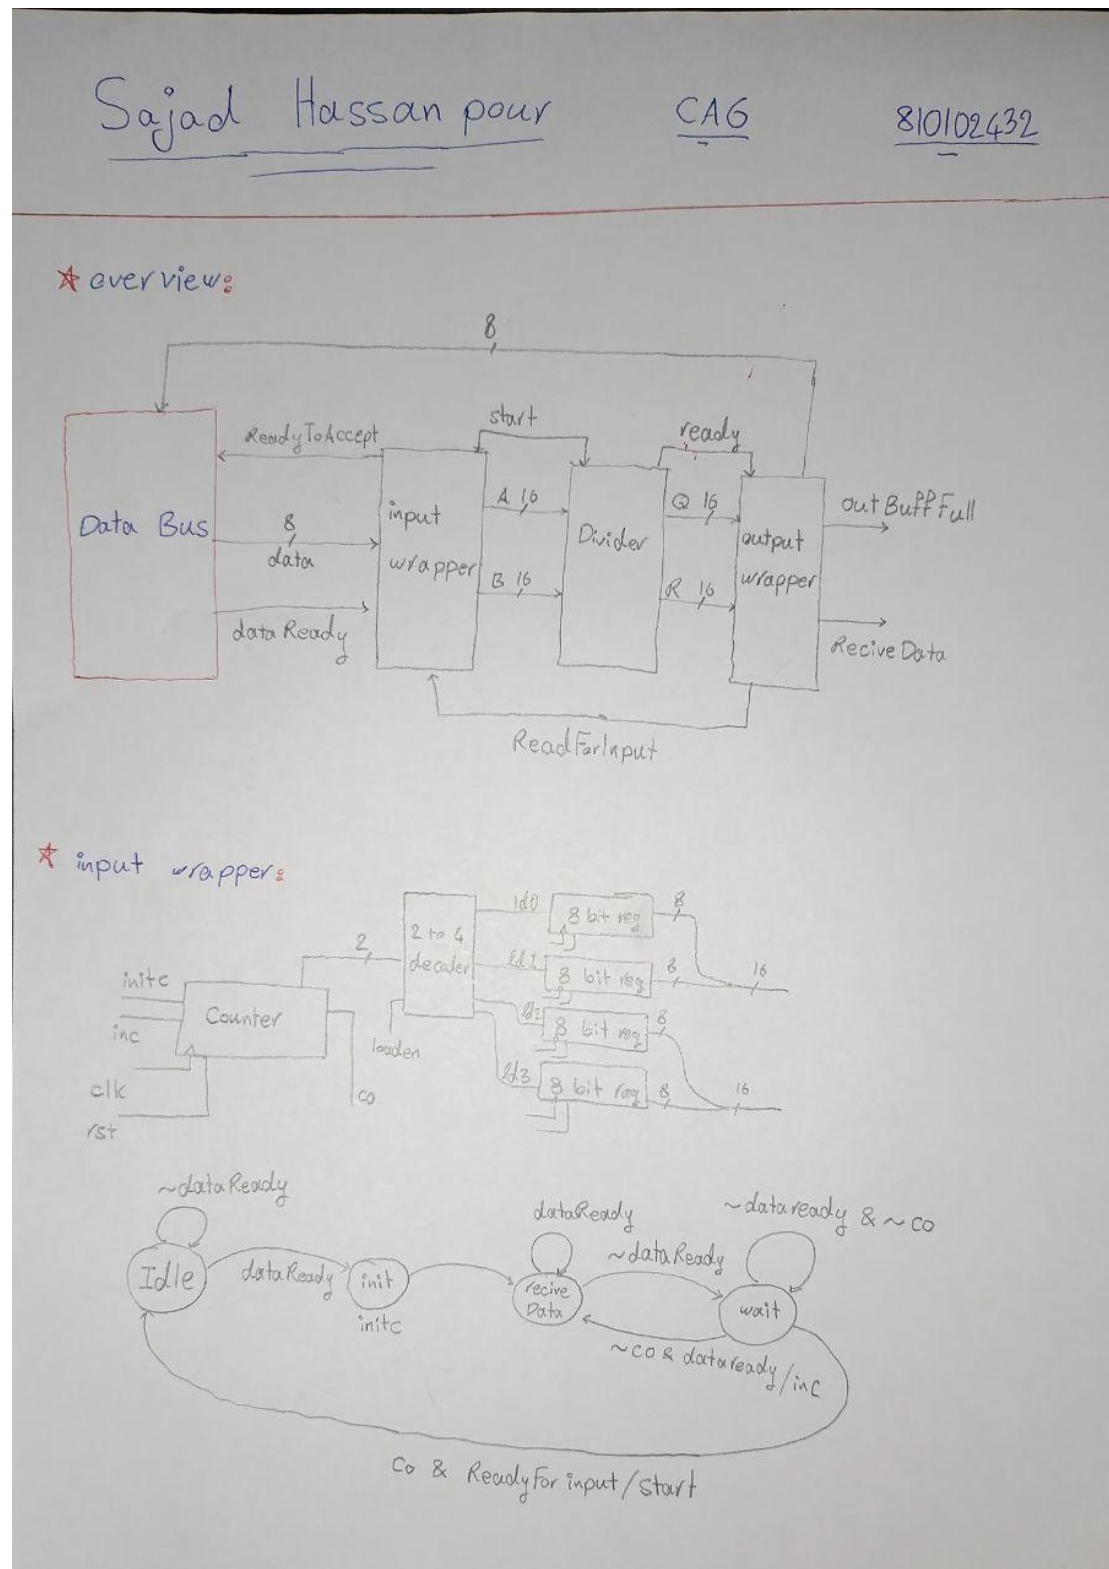 Sajad Hassanpour CA6 810102432
* overview:
8
ReadyToAccept
start
ready
Data Bus
8
data
dataReady
input
wrapper
A 16
B 16
Divider
Q 16
R 16
output
wrapper
outBuffFull
ReciveData
ReadForInput
* input wrapper:
initc
inc
clk
rst
Counter
co
2
2 to 4
decoder
loaden
ld0
8 bit reg
8
ld1
8 bit reg
8
16
ld2
8 bit reg
8
ld3
8 bit reg
8
16
~dataReady
Idle
dataReady
init
initc
dataReady
recive
Data
~dataReady
~dataready & ~co
wait
~co & dataready/inc
Co & ReadyForinput/start